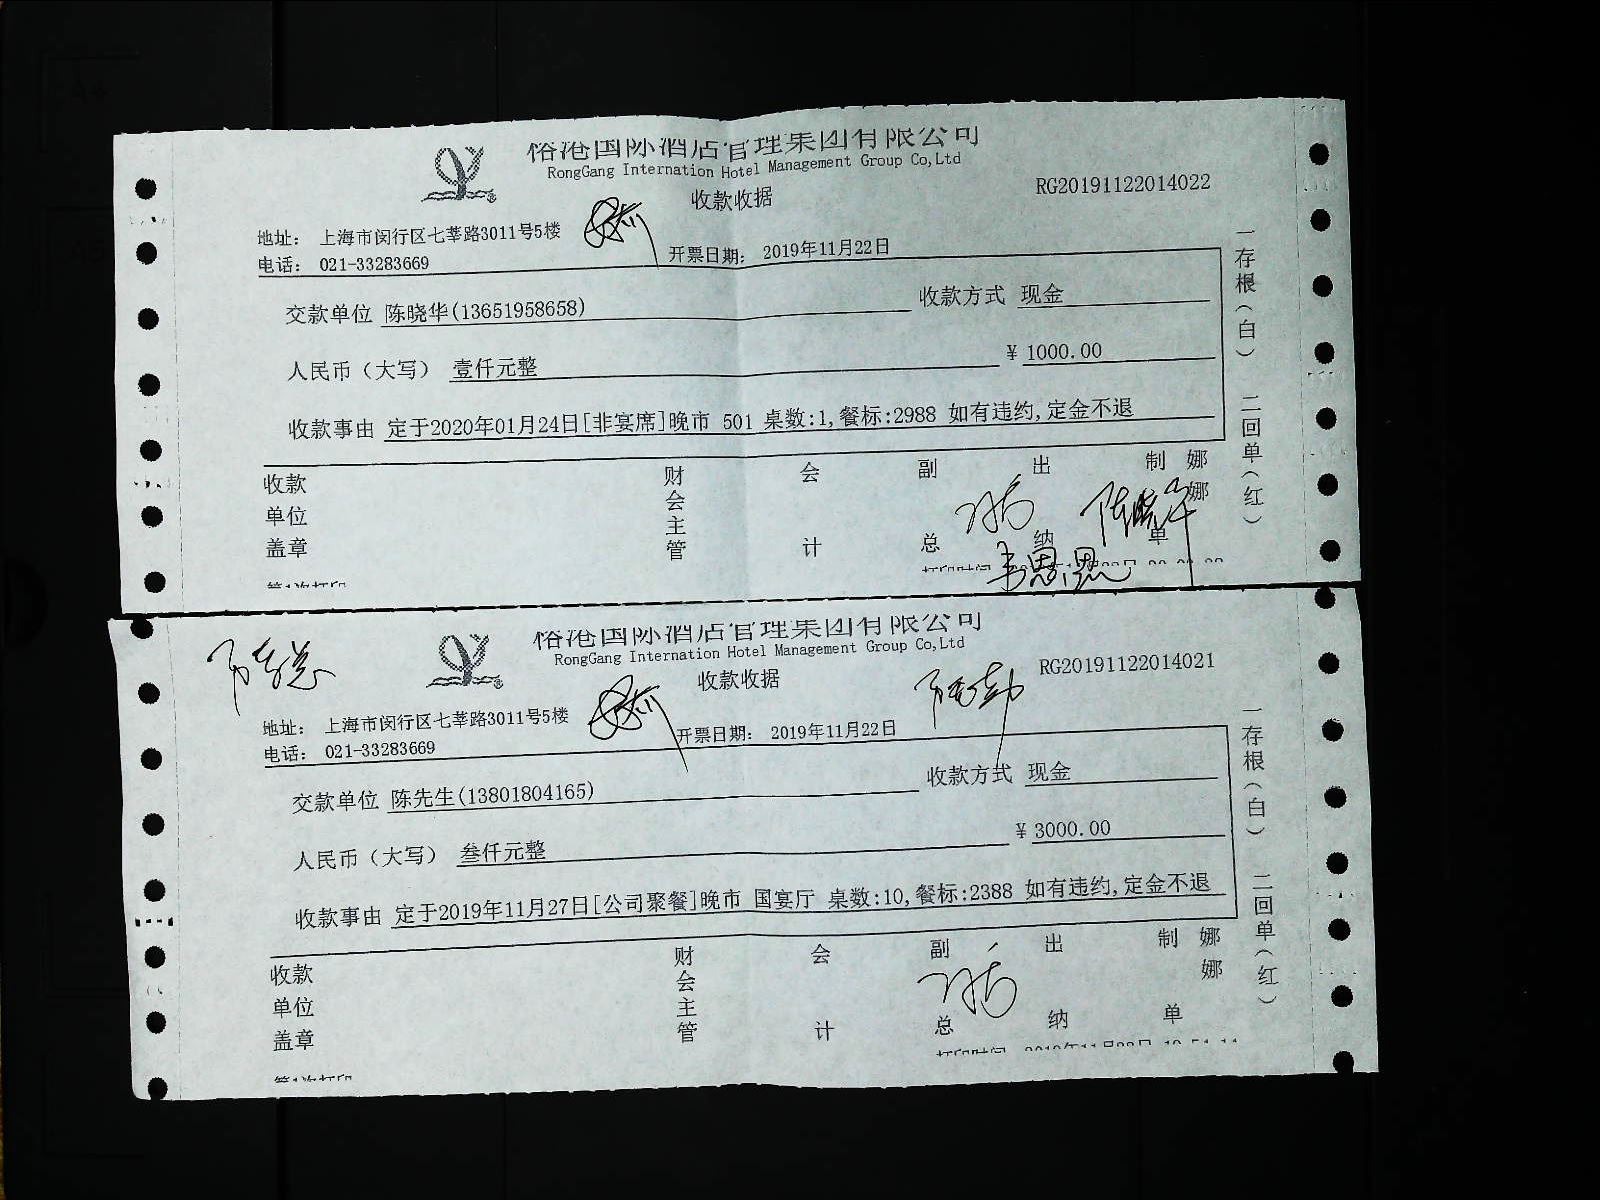 裕港国际酒店管理集团有限公司
RongGang Internation Hotel Management Group Co,Ltd
收款收据
RG20191122014022
地址： 上海市闵行区七莘路3011号5楼
电话： 021-33283669
开票日期： 2019年11月22日
交款单位 陈晓华(13651958658)
收款方式 现金
人民币（大写） 壹仟元整
¥ 1000.00
收款事由 定于2020年01月24日[非宴席]晚市 501 桌数:1,餐标:2988 如有违约,定金不退
一存根（白） 二回单（红）
收款单位盖章
财会主管
会计
副总
出纳
制单
娜娜
陈晓华
韦思思
第1次打印
裕港国际酒店管理集团有限公司
RongGang Internation Hotel Management Group Co,Ltd
收款收据
RG20191122014021
地址： 上海市闵行区七莘路3011号5楼
电话： 021-33283669
开票日期： 2019年11月22日
交款单位 陈先生(13801804165)
收款方式 现金
人民币（大写） 叁仟元整
¥ 3000.00
收款事由 定于2019年11月27日[公司聚餐]晚市 国宴厅 桌数:10,餐标:2388 如有违约,定金不退
一存根（白） 二回单（红）
收款单位盖章
财会主管
会计
副总
出纳
制单
娜娜
第1次打印